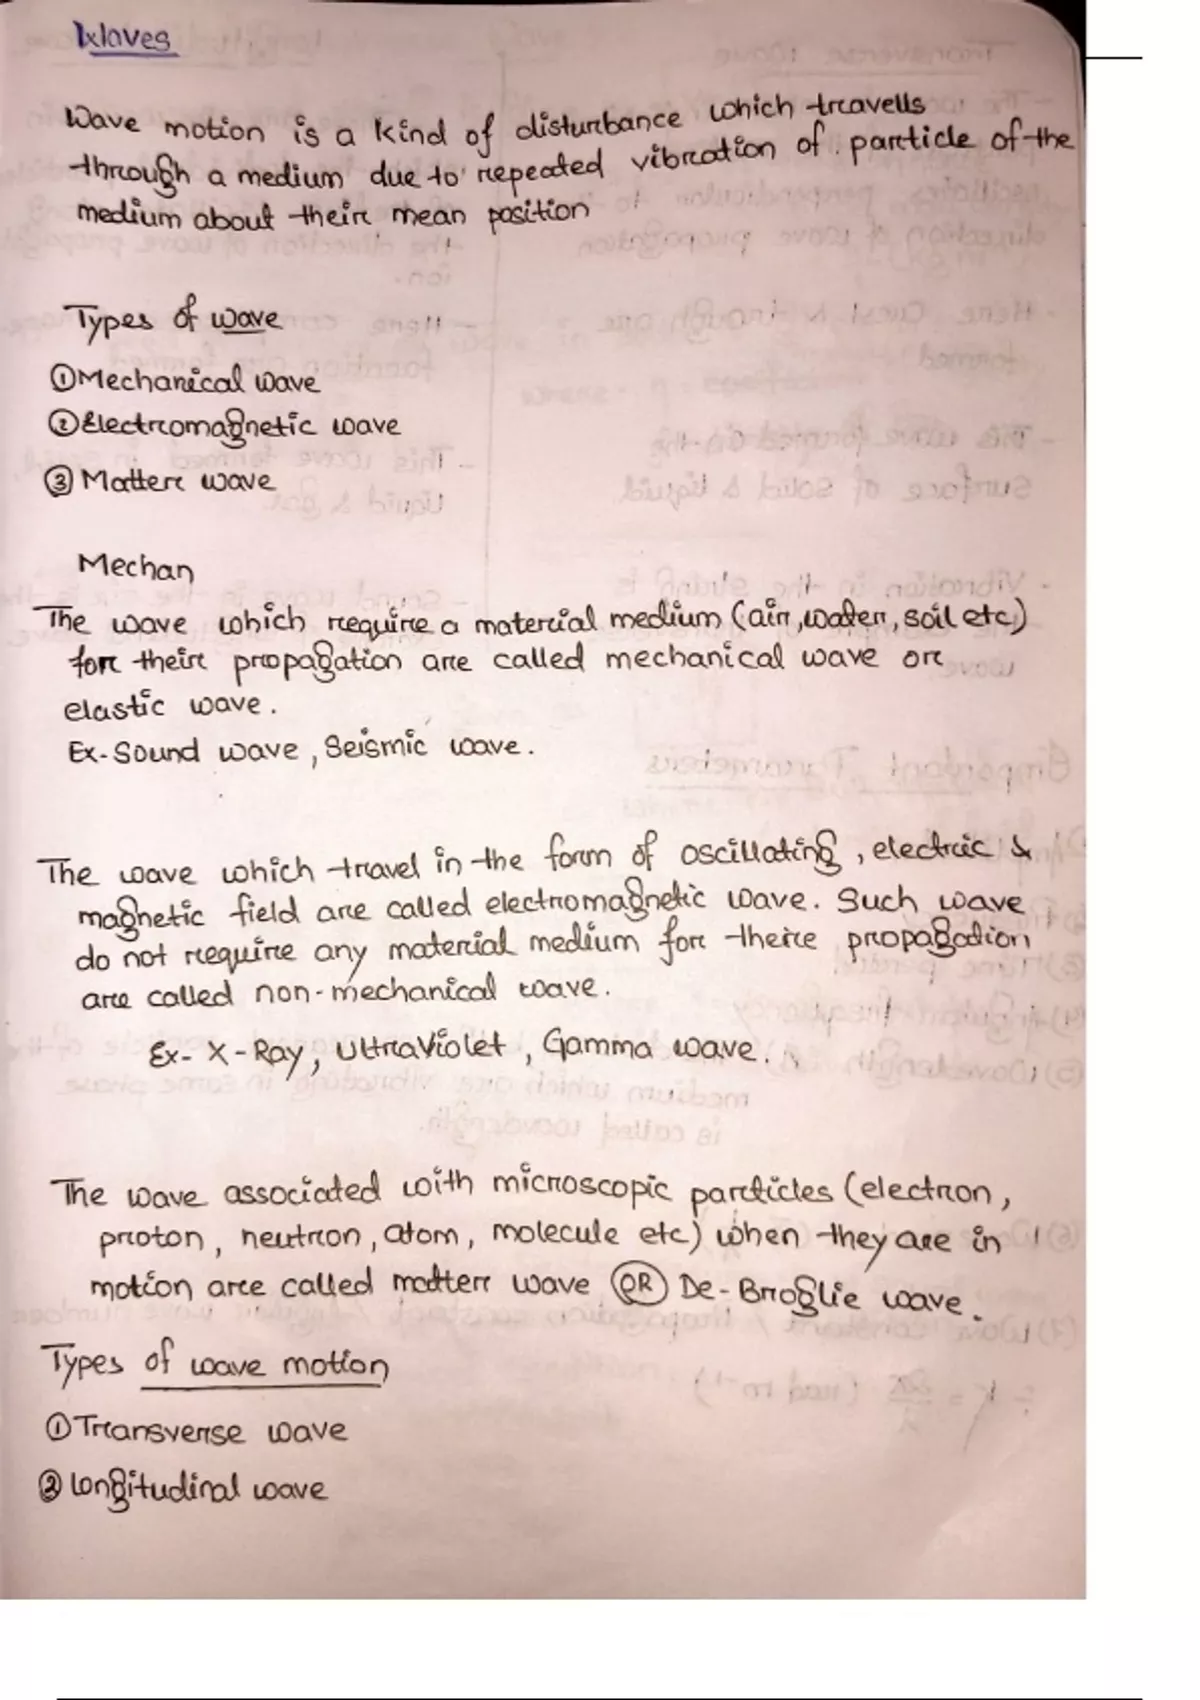 Waves
Wave motion is a kind of disturbance which travells
through a medium due to repeated vibration of particle of the
medium about their mean position
Types of wave
① Mechanical wave
② Electromagnetic wave
③ Matter wave
Mechan
The wave which require a material medium (air, water, soil etc)
for their propagation are called mechanical wave or
elastic wave.
Ex- Sound wave, Seismic wave.
The wave which travel in the form of oscillating, electric &
magnetic field are called electromagnetic wave. Such wave
do not require any material medium for their propagation
are called non-mechanical wave.
Ex- X-Ray, UltraViolet, Gamma wave.
The wave associated with microscopic particles (electron,
proton, neutron, atom, molecule etc) when they are in
motion are called matter wave OR De-Broglie wave.
Types of wave motion
① Transverse wave
② Longitudinal wave